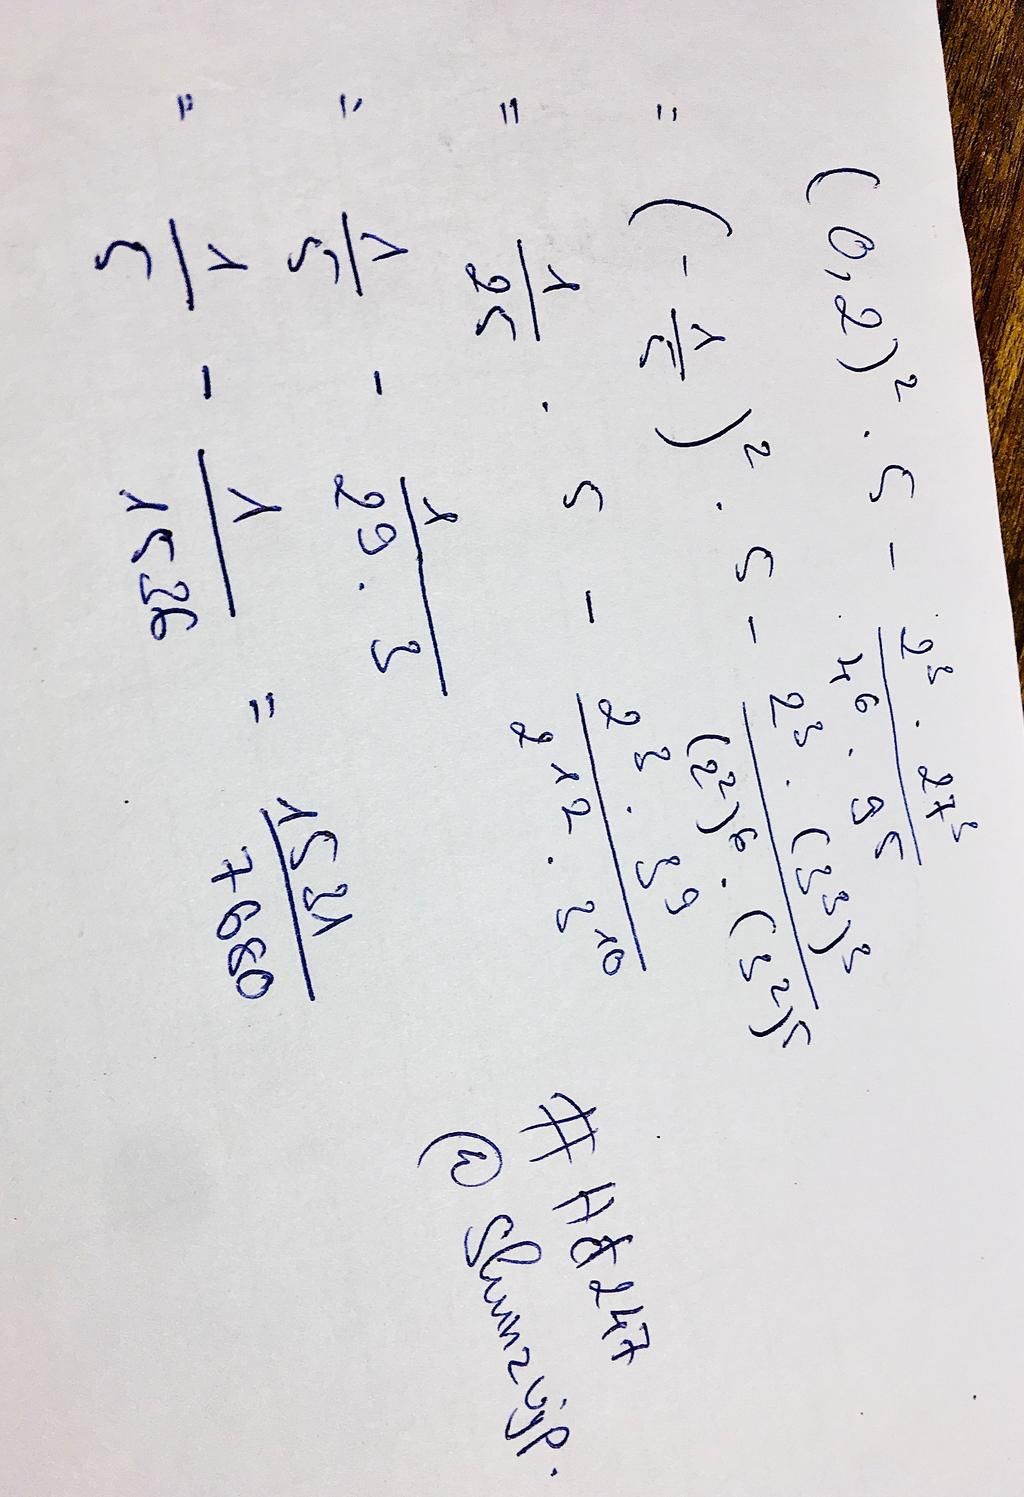 (0,2)² · 5 - 2³ · 27³ / 4⁶ · 9⁵
= (- 1/5)² · 5 - 2³ · (3³)³ / (2²)⁶ · (3²)⁵
= 1/25 · 5 - 2³ · 3⁹ / 2¹² · 3¹⁰
= 1/5 - 1 / 2⁹ · 3
= 1/5 - 1/1536 = 1531/7680